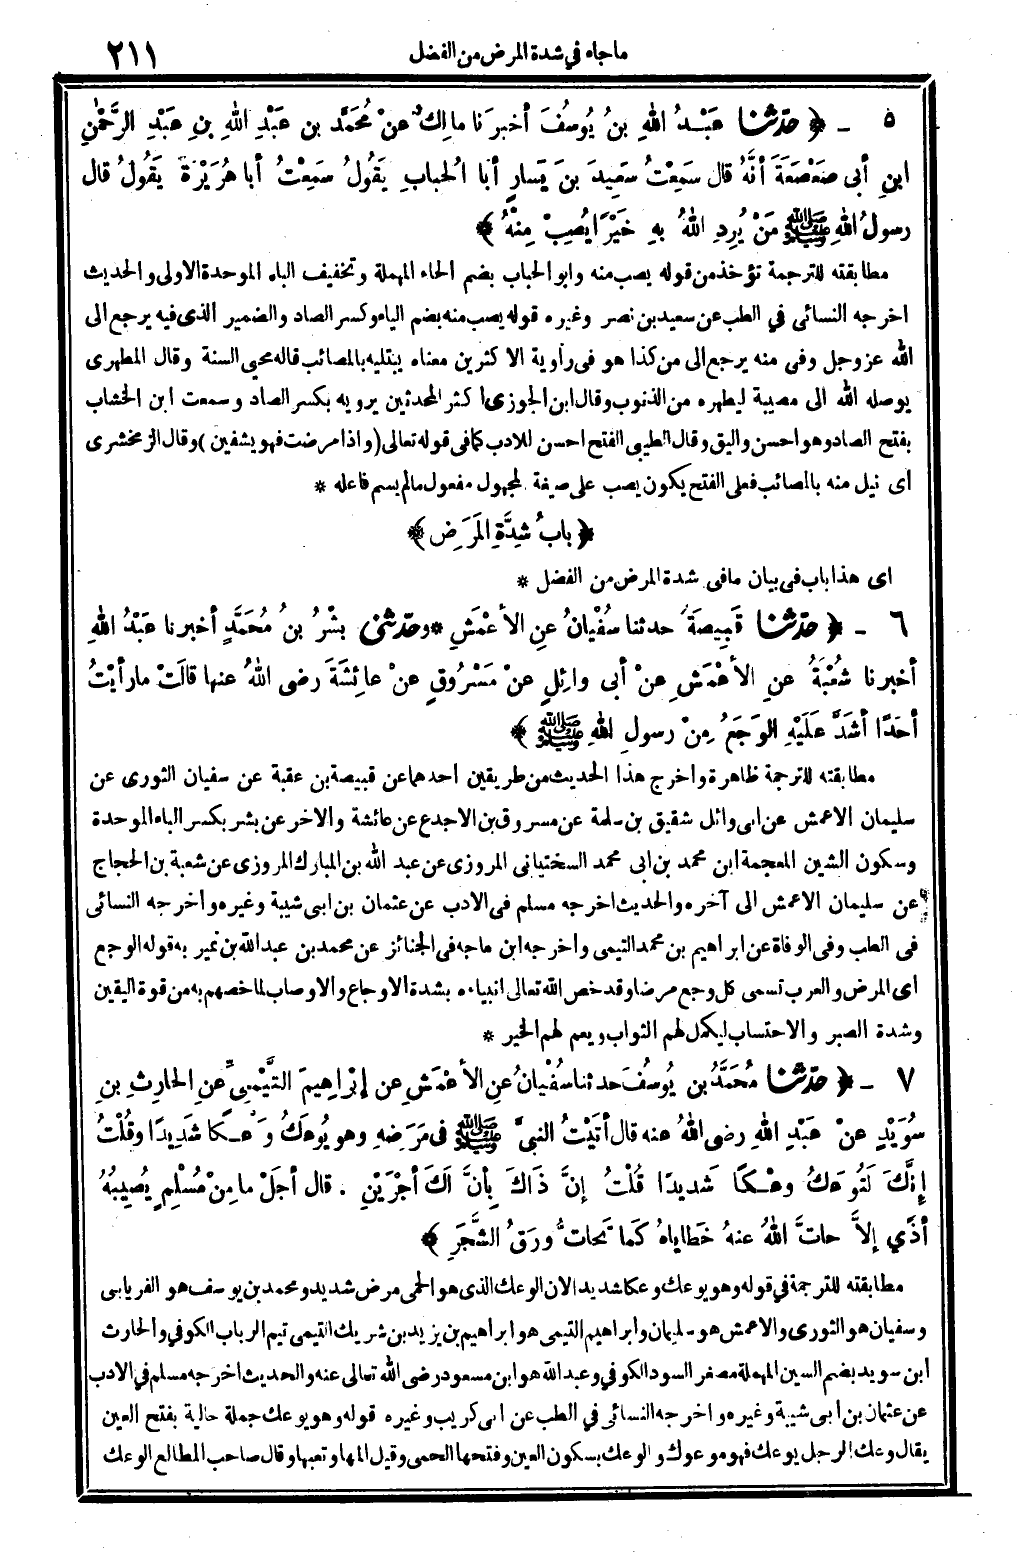 ما جاء في شدة المرض من الفضل ٢١١
٥ - ﴿ حَدَّثنا عَبْدُ اللهِ بنُ يُوسُفَ أخبرَنا مالِكٌ عنْ مُحَمَّدِ بنِ عَبْدِ اللهِ بنِ عبْدِ الرَّحْمٰنِ
ابنِ أبى صَعْصَعَةَ أنَّهُ قال سَمِعْتُ سَعِيدَ بنَ يَسارٍ أبا الحُبابِ يَقُولُ سَمِعْتُ أبا هُرَيْرَةَ يَقُولُ قال
رسولُ اللهِ ﷺ مَنْ يُرِدِ اللهُ بهِ خَيْرًا يُصِبْ مِنْهُ ﴾
مطابقته للترجمة تؤخذ من قوله يصب منه وابو الحباب بضم الحاء المهملة وتخفيف الباء الموحدة الاولى والحديث
اخرجه النسائى في الطب عن سعيد بن نصر وغيره قوله يصب منه بضم الياء وكسر الصاد والضمير الذى فيه يرجع الى
الله عز وجل وفى منه يرجع الى من كذا هو فى رأوية الاكثرين معناه يبتليه بالمصائب قاله محيي السنة وقال المطهرى
يوصله الله الى مصيبة ليطهره من الذنوب وقال ابن الجوزى اكثر المحدثين يرويه بكسر الصاد وسمعت ابن الخشاب
بفتح الصاد وهو احسن واليق وقال الطيبى الفتح احسن للادب كما فى قوله تعالى (واذا مرضت فهو يشفين) وقال الزمخشرى
اى نيل منه بالمصائب فعلى الفتح يكون يصب على صيغة المجهول مفعول مالم يسم فاعله *
﴿ بابُ شِدَّةِ المَرَضِ ﴾
اى هذا باب فى بيان ما فى شدة المرض من الفضل *
٦ - ﴿ حَدَّثنا قَبِيصَةُ حدثنا سُفْيانُ عنِ الأعْمَشِ * وحَدَّثنى بِشْرُ بنُ مُحَمَّدٍ أخبرنا عَبْدُ اللهِ
أخبرنا شُعْبَةُ عنِ الأعْمَشِ عنْ أبى وائِلٍ عنْ مَسْرُوقٍ عنْ عائِشَةَ رضى اللهُ عنها قالَتْ مارأيْتُ
أحَدًا أشَدَّ عَلَيْهِ الوَجَعُ مِنْ رسولِ اللهِ ﷺ ﴾
مطابقته للترجمة ظاهرة واخرج هذا الحديث من طريقين احدهما عن قبيصة بن عقبة عن سفيان الثورى عن
سليمان الاعمش عن ابى وائل شقيق بن سلمة عن مسروق بن الاجدع عن عائشة والاخر عن بشر بكسر الباء الموحدة
وسكون الشين المعجمة ابن محمد بن ابى محمد السختيانى المروزى عن عبد الله بن المبارك المروزى عن شعبة بن الحجاج
عن سليمان الاعمش الى آخره والحديث اخرجه مسلم فى الادب عن عثمان بن ابى شيبة وغيره واخرجه النسائى
فى الطب وفى الوفاة عن ابراهيم بن محمد التيمى واخرجه ابن ماجه فى الجنائز عن محمد بن عبدالله بن نمير به قوله الوجع
اى المرض والعرب تسمى كل وجع مرضا وقد خص الله تعالى انبياءه بشدة الاوجاع والاوصاب لما خصهم به من قوة اليقين
وشدة الصبر والاحتساب ليكمل لهم الثواب ويعم لهم الخير *
٧ - ﴿ حَدَّثنا مُحَمَّدُ بن يُوسُفَ حدثنا سُفْيانُ عنِ الأعْمَشِ عن إبْراهِيمَ التَّيْمِىِّ عنِ الحارِثِ بنِ
سُوَيْدٍ عنْ عَبْدِ اللهِ رضى اللهُ عنه قال أتَيْتُ النبىَّ ﷺ فى مَرَضِهِ وهو يُوعَكُ وَعْكًا شَدِيدًا وقُلْتُ
إنَّكَ لَتُوعَكُ وعْكًا شَدِيدًا قُلْتُ إنَّ ذَاكَ بِأنَّ لَكَ أجْرَيْنِ . قال أجَلْ ما مِنْ مُسْلِمٍ يُصِيبُهُ
أذًي إلاَّ حاتَّ اللهُ عنهُ خَطاياهُ كَما تَحاتُّ ورَقُ الشَّجَرِ ﴾
مطابقته للترجمة في قوله وهو يوعك وعكا شديدا لان الوعك الذى هو الحمى مرض شديد ومحمد بن يوسف هو الفريابى
وسفيان هو الثورى والاعمش هو سليمان وابراهيم التيمى هو ابراهيم بن يزيد بن شريك التيمى تيم الرباب الكوفي والحارث
ابن سويد بضم السين المهملة مصغر السود الكوفي وعبد الله هو ابن مسعود رضى الله تعالى عنه والحديث اخرجه مسلم في الادب
عن عثمان بن أبى شيبة وغيره واخرجه النسائى في الطب عن ابى كريب وغيره قوله وهو يوعك جملة حالية بفتح العين
يقال وعك الرجل يوعك فهو موعوك والوعك بسكون العين وفتحها الحمى وقيل المها وتعبها وقال صاحب المطالع الوعك